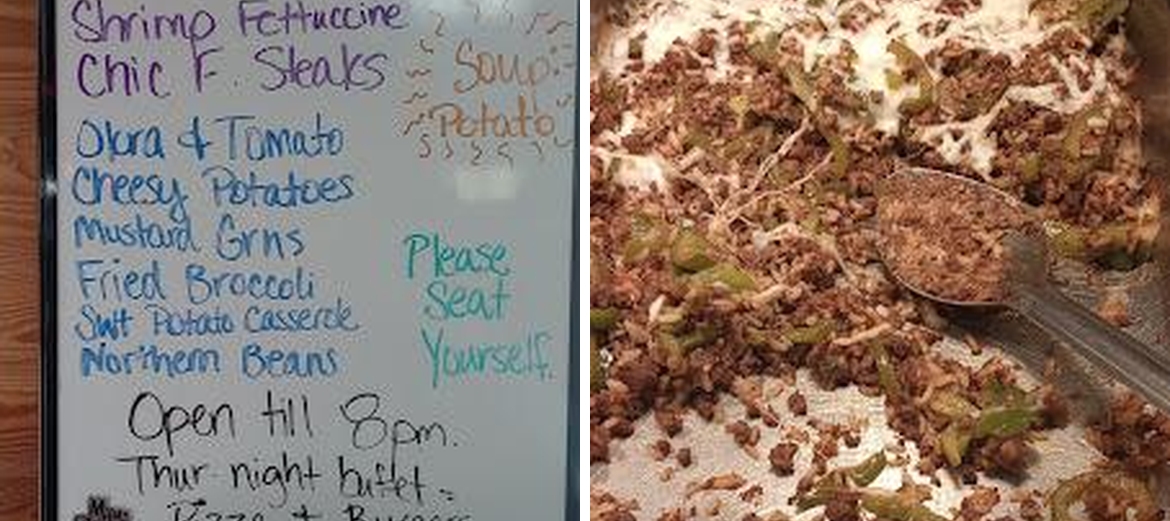 Shrimp Fettuccine
Chic F. Steaks
Soup:
Potato
Okra & Tomato
Cheesy Potatoes
Mustard Grns
Fried Broccoli
Swt Potato Casserole
Northern Beans
Please
Seat
Yourself.
Open till 8pm.
Thur night buffet =
Pizza + Burgers